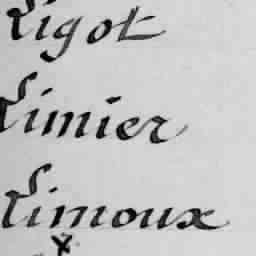 Ligot
Limier
Limoux
x